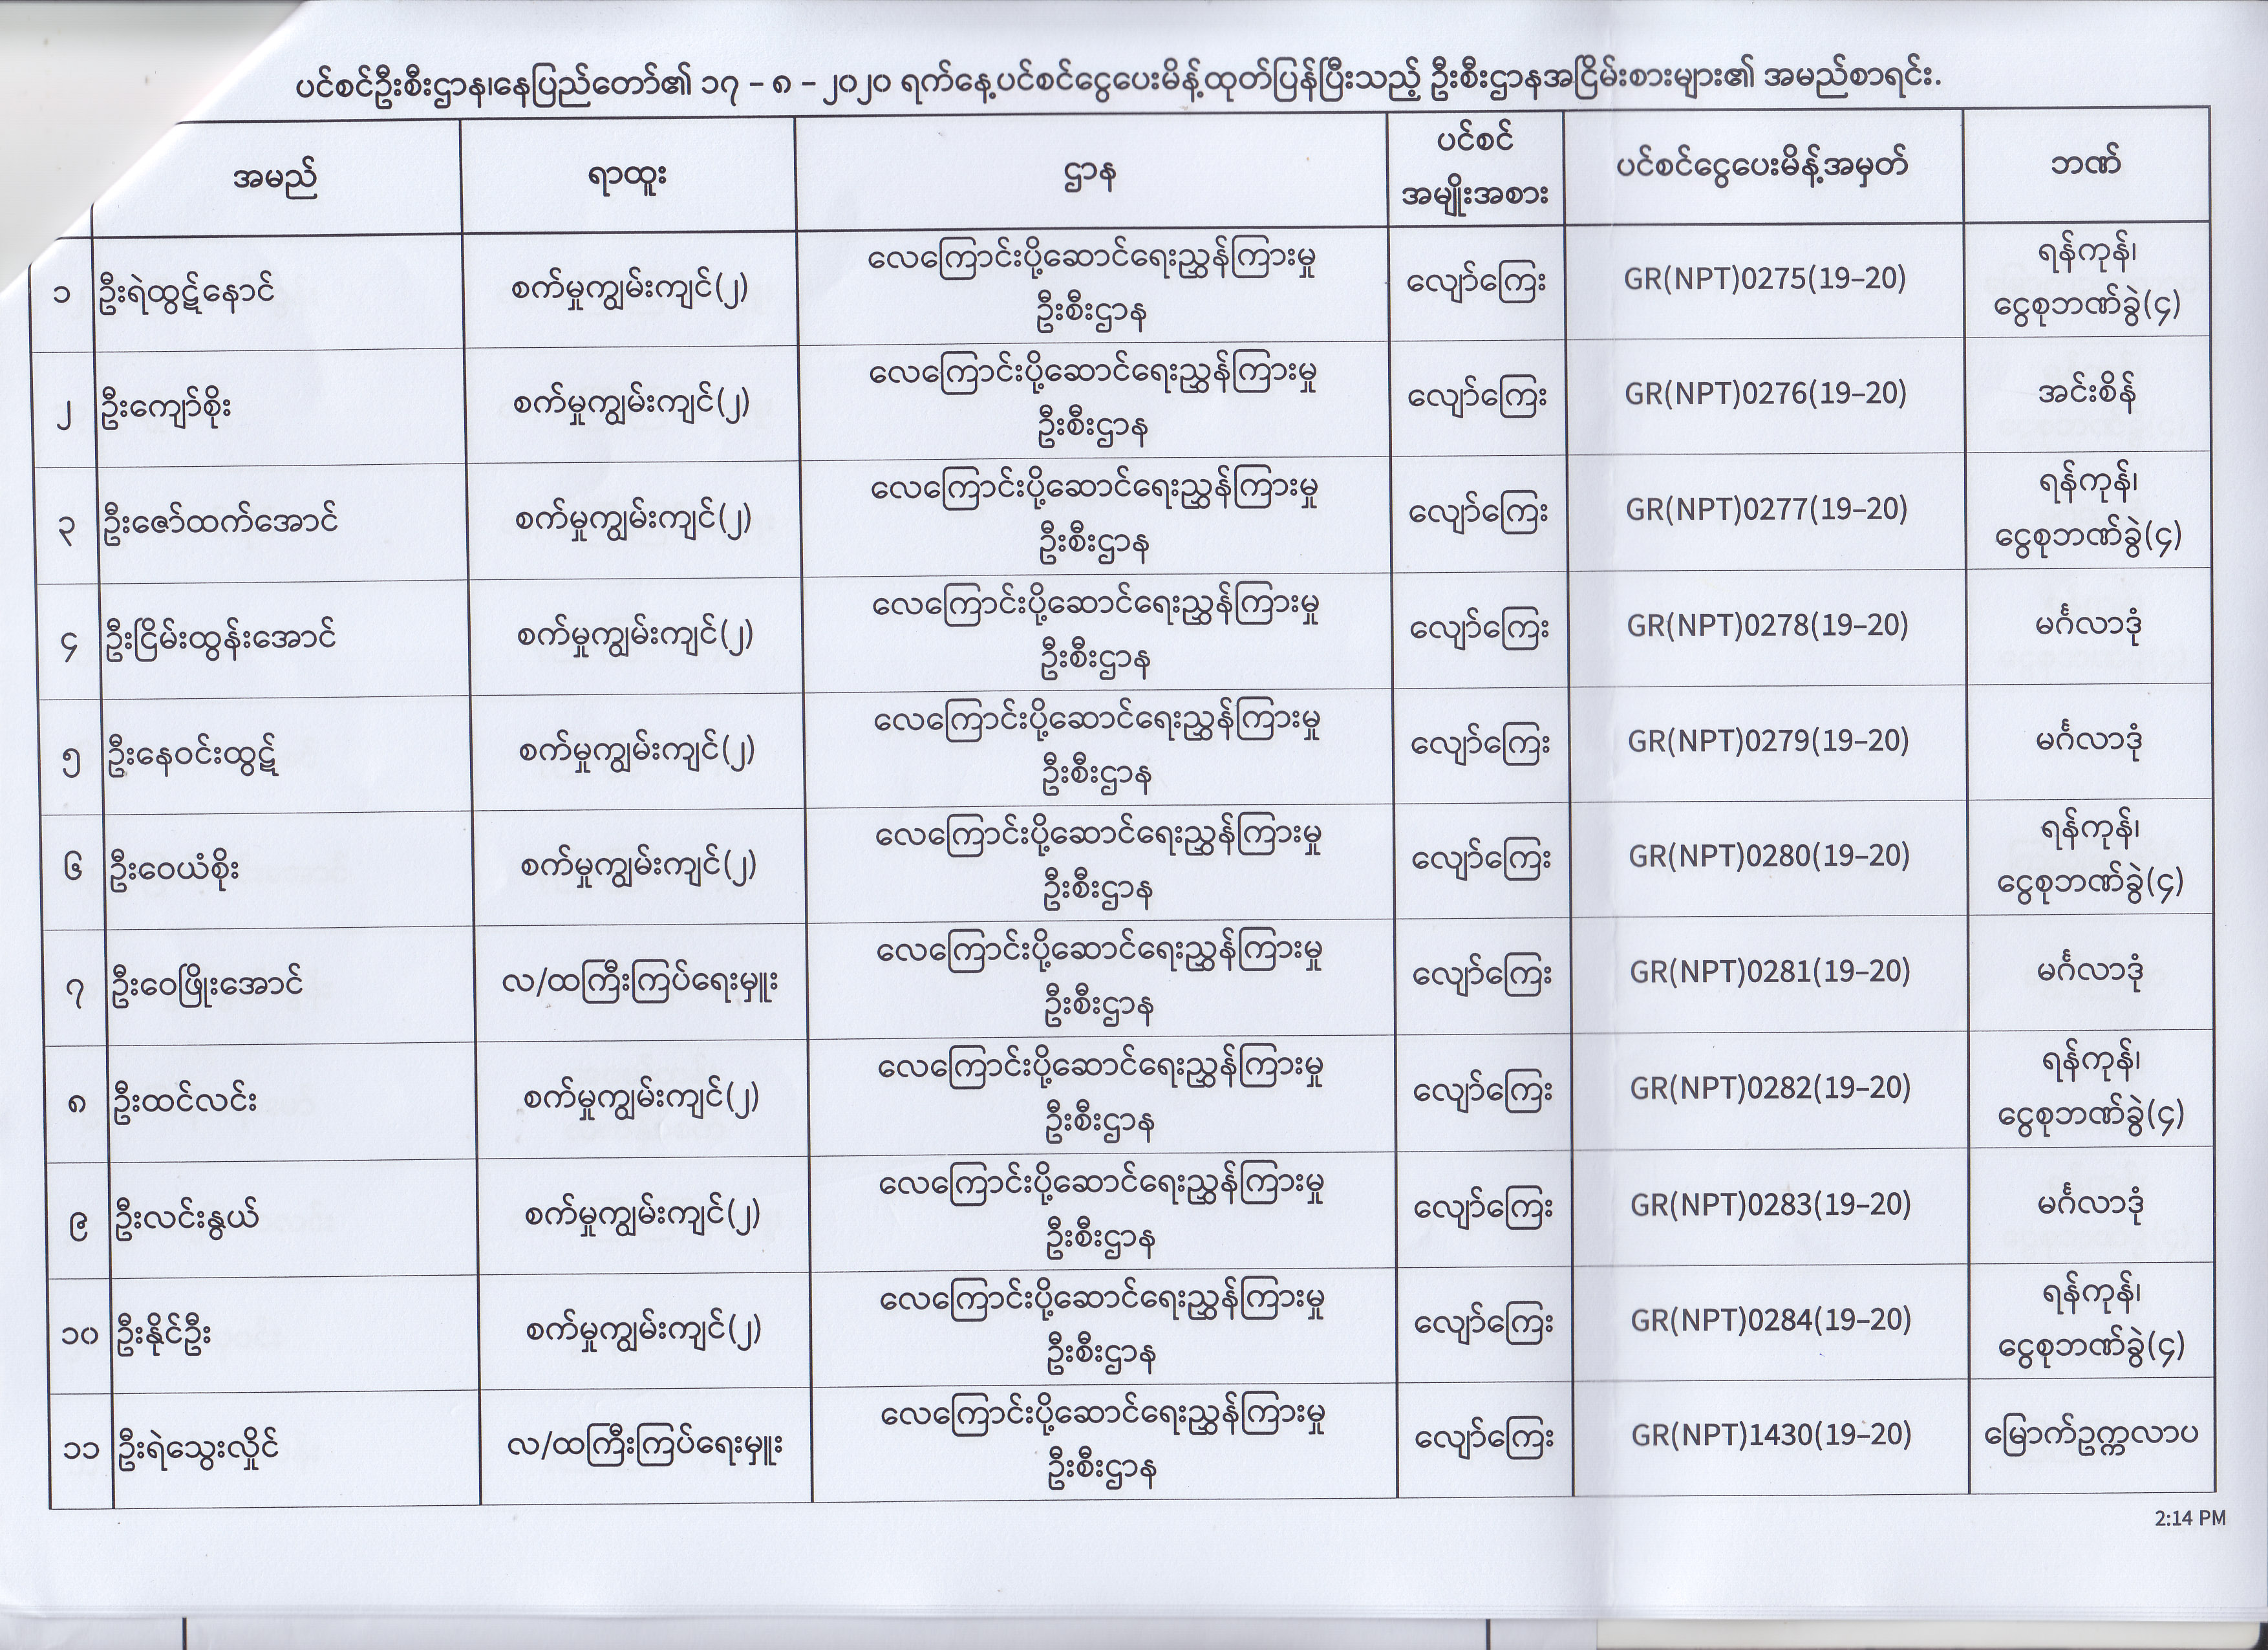 ပင်စင်ဦးစီးဌာန၊နေပြည်တော်၏ ၁၇ – ၈ – ၂၀၂၀ ရက်နေ့ပင်စင်ငွေပေးမိန့်ထုတ်ပြန်ပြီးသည့် ဦးစီးဌာနအငြိမ်းစားများ၏ အမည်စာရင်း.
အမည် ရာထူး ဌာန ပင်စင် အမျိုးအစား ပင်စင်ငွေပေးမိန့်အမှတ် ဘဏ်
၁ ဦးရဲထွဋ်နောင် စက်မှုကျွမ်းကျင်(၂) လေကြောင်းပို့ဆောင်ရေးညွှန်ကြားမှု ဦးစီးဌာန လျော်ကြေး GR(NPT)0275(19–20) ရန်ကုန်၊ ငွေစုဘဏ်ခွဲ(၄)
၂ ဦးကျော်စိုး စက်မှုကျွမ်းကျင်(၂) လေကြောင်းပို့ဆောင်ရေးညွှန်ကြားမှု ဦးစီးဌာန လျော်ကြေး GR(NPT)0276(19–20) အင်းစိန်
၃ ဦးဇော်ထက်အောင် စက်မှုကျွမ်းကျင်(၂) လေကြောင်းပို့ဆောင်ရေးညွှန်ကြားမှု ဦးစီးဌာန လျော်ကြေး GR(NPT)0277(19–20) ရန်ကုန်၊ ငွေစုဘဏ်ခွဲ(၄)
၄ ဦးငြိမ်းထွန်းအောင် စက်မှုကျွမ်းကျင်(၂) လေကြောင်းပို့ဆောင်ရေးညွှန်ကြားမှု ဦးစီးဌာန လျော်ကြေး GR(NPT)0278(19–20) မင်္ဂလာဒုံ
၅ ဦးနေဝင်းထွဋ် စက်မှုကျွမ်းကျင်(၂) လေကြောင်းပို့ဆောင်ရေးညွှန်ကြားမှု ဦးစီးဌာန လျော်ကြေး GR(NPT)0279(19–20) မင်္ဂလာဒုံ
၆ ဦးဝေယံစိုး စက်မှုကျွမ်းကျင်(၂) လေကြောင်းပို့ဆောင်ရေးညွှန်ကြားမှု ဦးစီးဌာန လျော်ကြေး GR(NPT)0280(19–20) ရန်ကုန်၊ ငွေစုဘဏ်ခွဲ(၄)
၇ ဦးဝေဖြိုးအောင် လ/ထကြီးကြပ်ရေးမှူး လေကြောင်းပို့ဆောင်ရေးညွှန်ကြားမှု ဦးစီးဌာန လျော်ကြေး GR(NPT)0281(19–20) မင်္ဂလာဒုံ
၈ ဦးထင်လင်း စက်မှုကျွမ်းကျင်(၂) လေကြောင်းပို့ဆောင်ရေးညွှန်ကြားမှု ဦးစီးဌာန လျော်ကြေး GR(NPT)0282(19–20) ရန်ကုန်၊ ငွေစုဘဏ်ခွဲ(၄)
၉ ဦးလင်းနွယ် စက်မှုကျွမ်းကျင်(၂) လေကြောင်းပို့ဆောင်ရေးညွှန်ကြားမှု ဦးစီးဌာန လျော်ကြေး GR(NPT)0283(19–20) မင်္ဂလာဒုံ
၁၀ ဦးနိုင်ဦး စက်မှုကျွမ်းကျင်(၂) လေကြောင်းပို့ဆောင်ရေးညွှန်ကြားမှု ဦးစီးဌာန လျော်ကြေး GR(NPT)0284(19–20) ရန်ကုန်၊ ငွေစုဘဏ်ခွဲ(၄)
၁၁ ဦးရဲသွေးလှိုင် လ/ထကြီးကြပ်ရေးမှူး လေကြောင်းပို့ဆောင်ရေးညွှန်ကြားမှု ဦးစီးဌာန လျော်ကြေး GR(NPT)1430(19–20) မြောက်ဥက္ကလာပ
2:14 PM